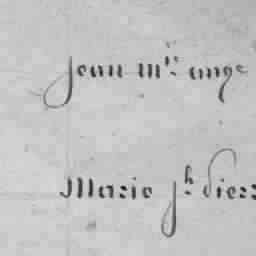 jean m.ie ange
Marie j.h pierr